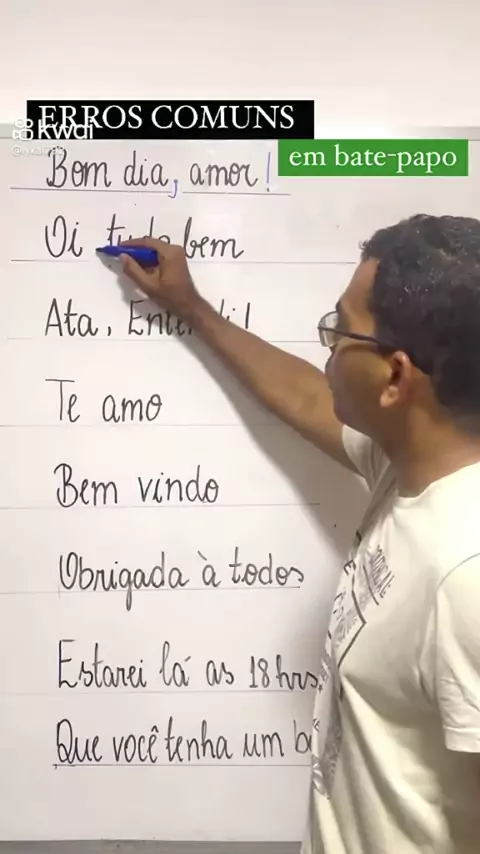 ERROS COMUNS
kwai
em bate-papo
Bom dia, amor!
Oi bem
Ata,
Te amo
Bem vindo
Obrigada à todos
Estarei lá as 18 hrs.
Que você tenha um